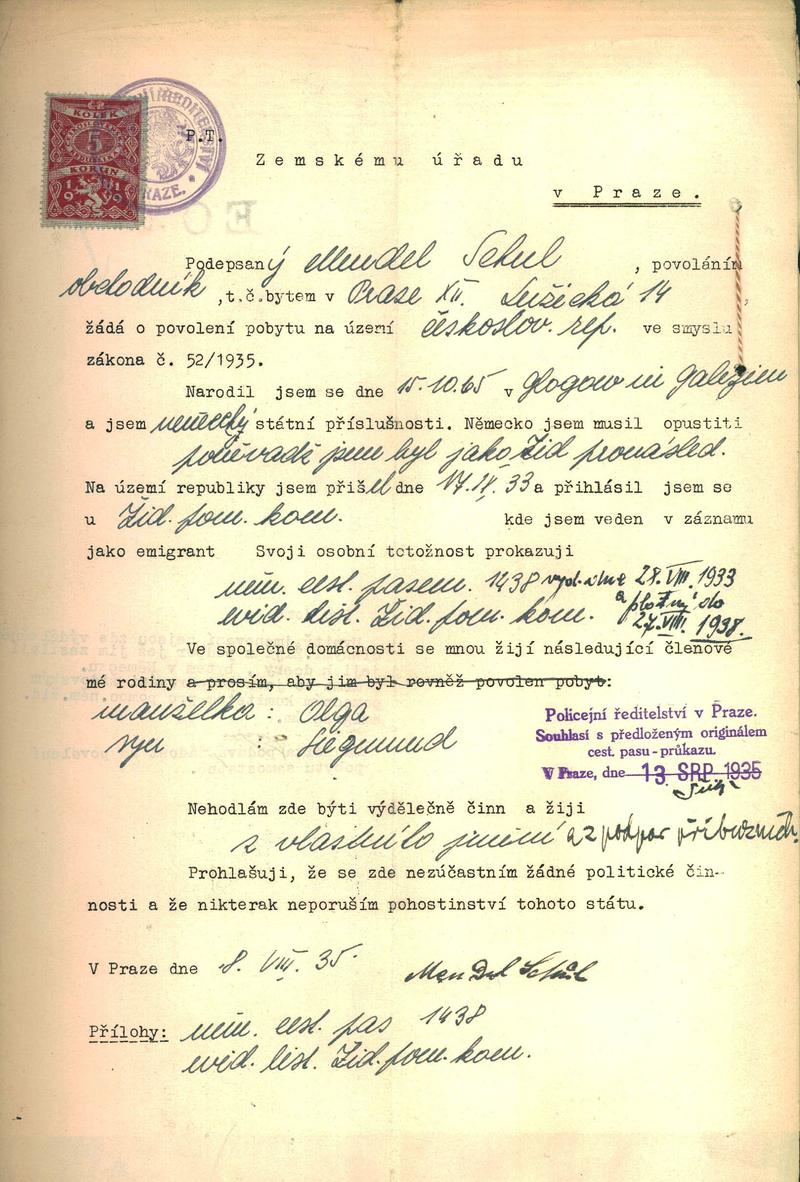 KOLEK
5
KORUN
1919
PRAZE.
P.T.
Zemskému úřadu
v Praze.
Podepsaný Mendel Schul , povoláním
obchodník ,t.č.bytem v Praze XII. Lužická 14 ,
žádá o povolení pobytu na území českoslov. rep. ve smyslu
zákona č. 52/1935.
Narodil jsem se dne 15.10.65 v Glogow in Galizien
a jsem německý státní příslušnosti. Německo jsem musil opustiti
poněvadž jsem byl jako Žid pronásled.
Na území republiky jsem přišel dne 17.IX.33 a přihlásil jsem se
u Žid. pom. kom. kde jsem veden v záznamu
jako emigrant Svoji osobní totožnost prokazuji
něm. cest. pasem. 1438 vyd. dne 28.VIII.1933
evid. list. Žid. pom. kom. a platný do
27.VIII.1938.
Ve společné domácnosti se mnou žijí následující členové
mé rodiny a prosím, aby jim byl rovněž povolen pobyt:
manželka : Olga
syn : Siegmund
Policejní ředitelství v Praze.
Souhlasí s předloženým originálem
cest. pasu-průkazu.
V Praze, dne 13 SRP. 1935
Nehodlám zde býti výdělečně činn a žiji
z vlastního jmění a z podpor příbuzných.
Prohlašuji, že se zde nezúčastním žádné politické čin-
nosti a že nikterak neporuším pohostinství tohoto státu.
V Praze dne 8. VIII. 35. Mendel Schul
Přílohy: něm. cest. pas 1438
evid. list. Žid. pom. kom.